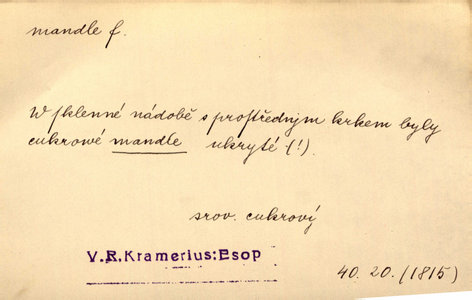 mandle f.
W ſklenné nádobě s proſtředným krkem byly
cukrowé mandle ukryté (!).
srov. cukrový
V.R.Kramerius: Esop
40. 20. (1815)